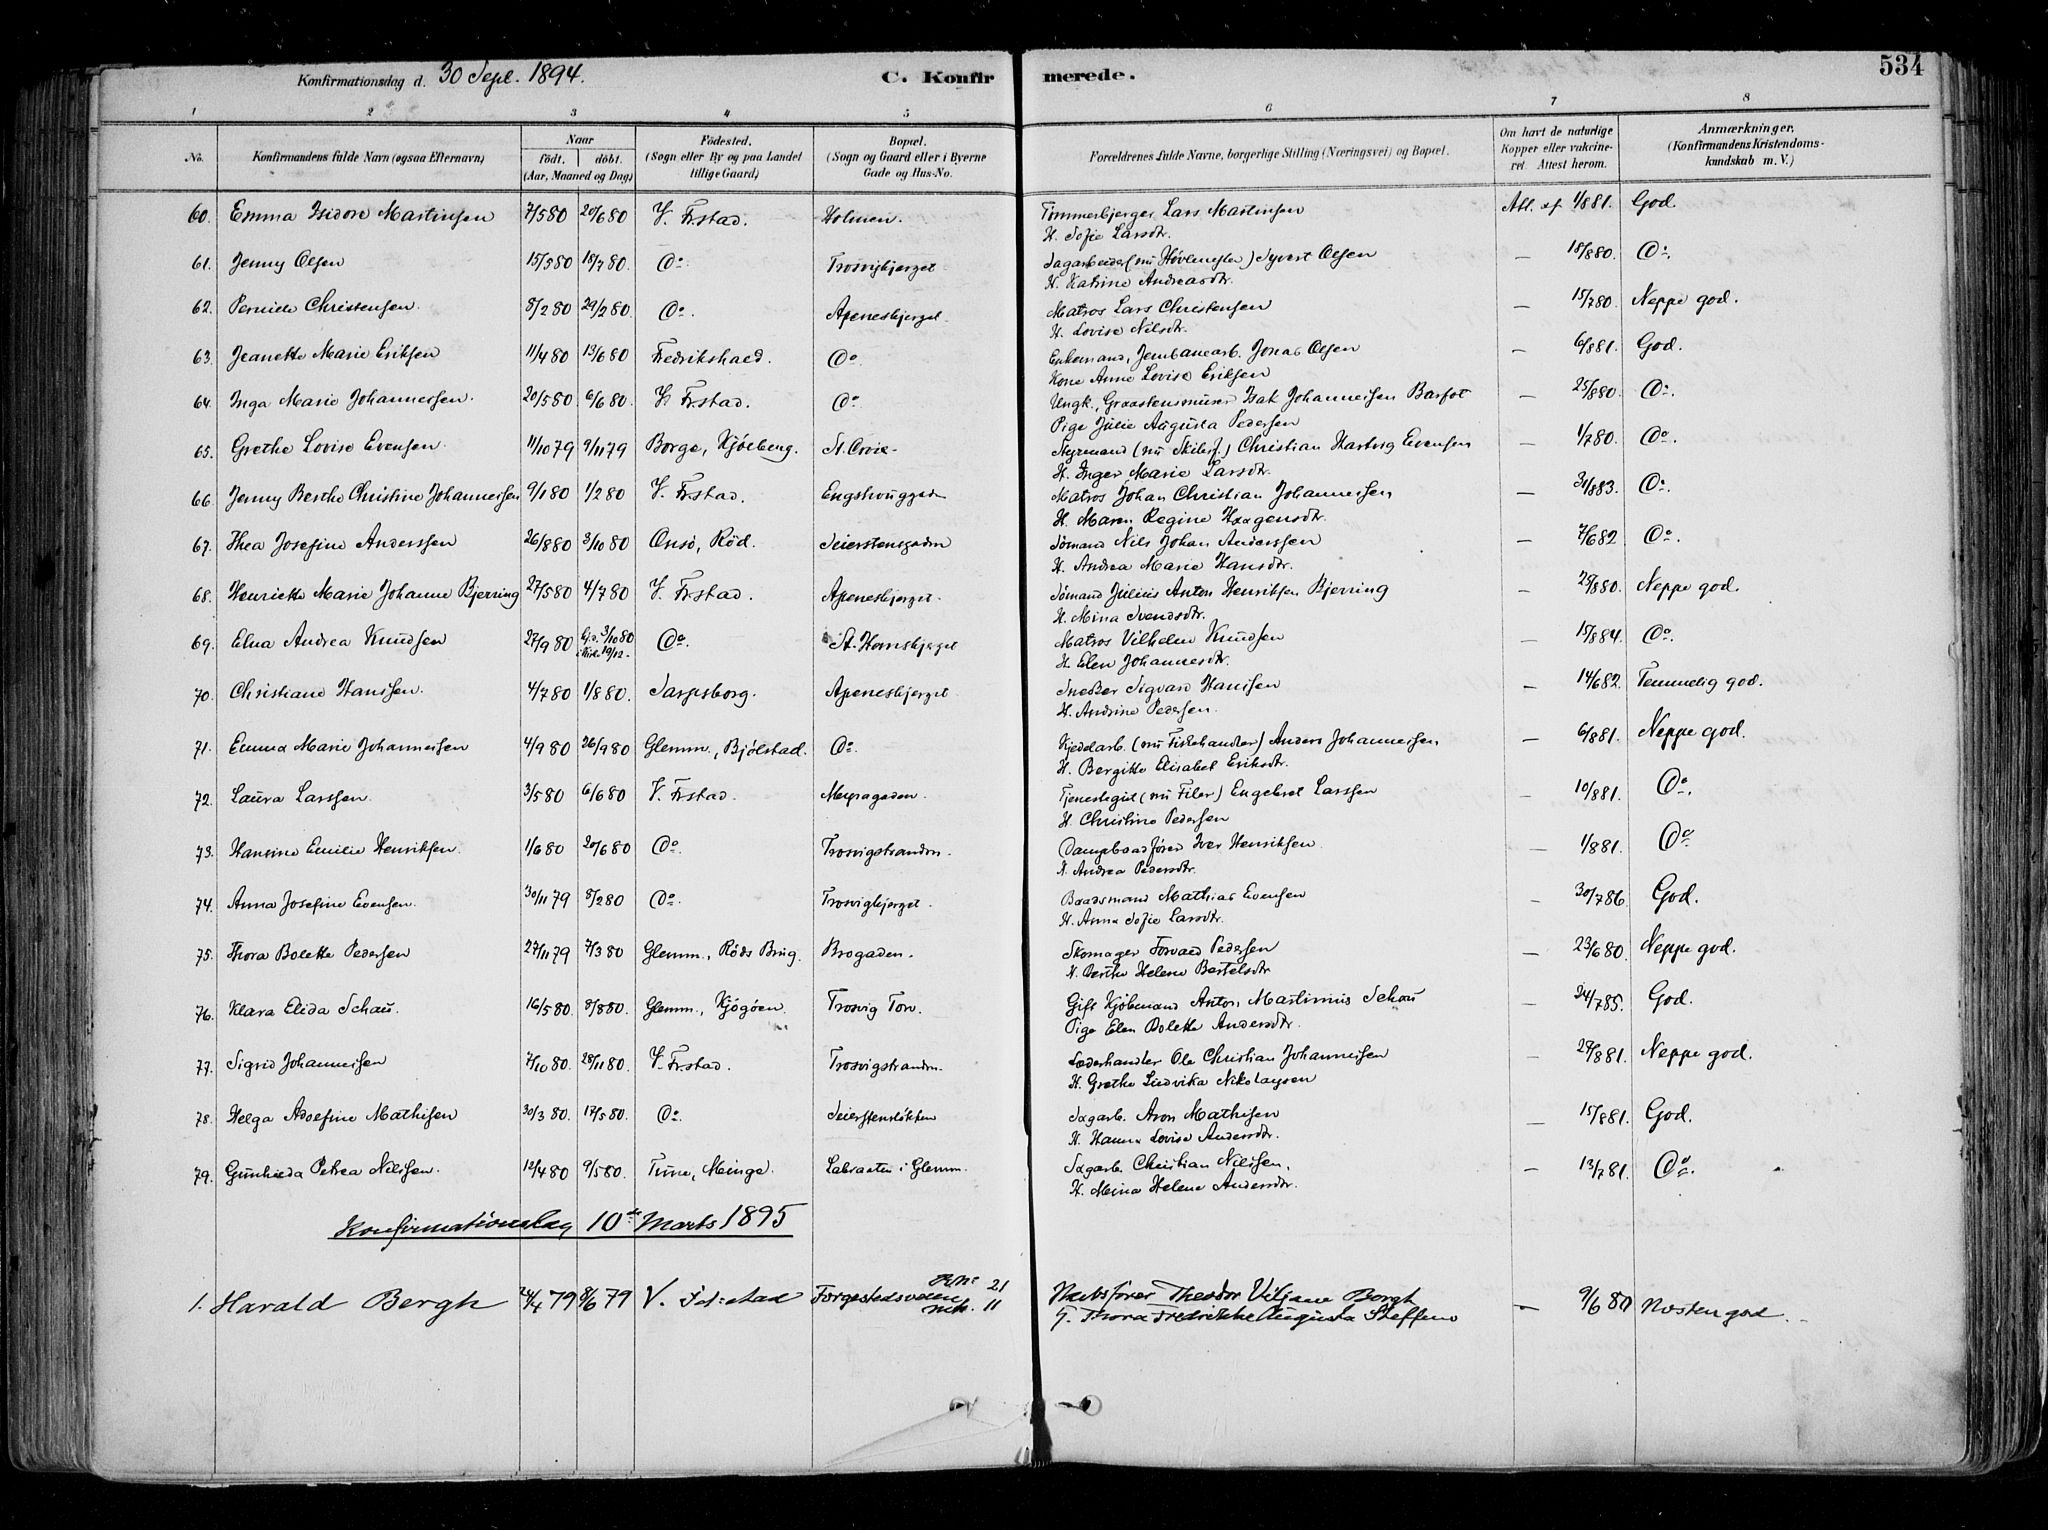 534
Konfirmationsdag d. 30 Sept. 1894.
C. Konfirmerede.
1 2 3 4 5 6 7 8
No.
Konfirmandens fulde Navn (ogsaa Efternavn)
Naar
født. døbt.
(Aar, Maaned og Dag)
Fødested.
(Sogn eller By og paa Landet
tillige Gaard)
Bopæl.
(Sogn og Gaard eller i Byerne
Gade og Hus-No.
Forældrenes fulde Navne, borgerlige Stilling (Næringsvei) og Bopæl.
Om havt de naturlige
Kopper eller vakcine-
ret. Attest herom.
Anmærkninger.
(Konfirmandens Kristendoms-
kundskab m. V.)
60. Emma Isidore Martinsen 7/5 80 20/6 80 V. Fr.stad. Holmen. Tømmerbjerger Lars Martinsen Att. af 1/8 81. God.
H. Sofie Larsdtr.
61. Jenny Olsen 15/5 80 18/7 80. Do. Trosvigbjerget. Sagarbeider (nu Høvlemester) Syvert Olsen — 18/8 80. Do.
H. Katrine Andreasdtr.
62. Pernille Christensen 8/2 80 29/2 80. Do. Apenesbjerget. Matros Lars Christensen — 15/7 80. Neppe god.
H. Lovise Nilsdtr.
63. Jeanette Marie Eriksen 11/4 80 13/6 80 Fredrikshald. Do. Enkemand, Jernbanearb. Jonas Olsen — 6/8 81. God.
Kone Anne Lovise Eriksen
64. Inga Marie Johannessen. 20/5 80 6/6 80. V. Fr.stad. Do. Ungk., Graastensmurer Isak Johannessen Barfot — 25/8 80. Do.
Pige Julie Augusta Pedersen
65. Grethe Lovise Evensen. 11/10 79 9/11 79 Borge, Kjølberg. St. Croix. Styrmand (nu Skibsf.) Christian Hartvig Evensen — 1/7 80. Do.
H. Inger Marie Larsdtr.
66. Jenny Berthe Christine Johannessen 9/1 80 1/2 80 V. Fr.stad. Enghauggaden Matros Johan Christian Johannessen — 31/8 83. Do.
H. Maren Regine Haagensdtr.
67. Thea Josefine Anderssen 26/8 80 3/10 80 Onsø, Rød. Seierstensgaden Sømand Nils Johan Anderssen — 7/6 82 Do.
H. Andrea Marie Hansdtr.
68. Henriette Marie Johanne Bjerring 27/5 80 4/7 80 V. Fr.stad. Apenesbjerget. Sømand Julius Anton Henriksen Bjerring — 28/8 80. Neppe god.
H. Mina Svendsdtr.
69. Elna Andrea Knudsen 27/9 80 Hjd. 3/10 80 Do. St. Hansbjerget Matros Vilhelm Knudsen — 15/8 84. Do.
i Kirke 19/12. H. Elen Johannesdtr.
70. Christiane Hanssen. 4/7 80 1/8 80. Sarpsborg. Apenesbjerget Snedker Sigvard Hanssen — 14/6 82. Temmelig god.
H. Andrine Pedersen.
71. Emma Marie Johannessen 4/9 80 26/9 80 Glemm., Bjølstad. Do. Kjedelarb. (nu Fiskehandler) Anders Johannessen — 6/8 81. Neppe god.
H. Bergitte Elisabet Eriksdtr.
72. Laura Larssen. 3/5 80 6/6 80 V. Fr.stad. Meyragaden. Tjenestegut (nu Filer) Engebret Larssen — 10/8 81. Do.
H. Christine Pedersen
73. Hansine Emilie Henriksen. 1/6 80 20/6 80 Do. Trosvigstranden. Dampbaadfører Iver Henriksen. — 1/8 81. Do
H. Andrea Pedersdtr.
74. Anna Josefine Evensen. 30/11 79 8/2 80 Do. Trosvigbjerget. Baadsmand Mathias Evensen — 30/7 86. God.
H. Anna Sofie Larsdtr.
75. Thora Bolette Pedersen 27/11 79 7/3 80 Glemm., Røds Brug. Brogaden. Skomager Torvald Pedersen — 23/6 80. Neppe god.
H. Berthe Helene Bertelsdtr
76. Klara Elida Schau. 16/5 80. 8/8 80. Glemm., Kjøgøen. Trosvig Torv. Gift Kjøbmand Anton Martinius Schau — 24/7 85. God.
Pige Elen Bolette Andersdtr.
77. Sigrid Johannessen 7/10 80. 28/11 80. V. Fr.stad. Trosvigstranden. Læderhandler Ole Christian Johannessen — 29/8 81. Neppe god.
H. Grethe Ludvika Nikolaysen
78. Helga Adolfine Mathisen 30/3 80. 17/5 80. Do. Seierstensløkken Sagarb. Aron Mathisen — 15/8 81. God.
H. Hanna Lovise Andersdtr.
79. Gunhilda Petrea Nilssen. 12/4 80 9/5 80. Tune, Meinge. Labraaten i Glemm. Sagarb. Christian Nilssen. — 13/7 81. Do.
H. Meina Helene Andersdtr.
Konfirmationsdag 10de Marts 1895
1. Harald Bergh 24/4 79 8/6 79 V. Fr:stad Forgestedsveien 21 Theodor Viljam Bergh — 9/6 80 Næsten god.
Mtr. 11 G. Thora Fredrikke Augusta Steffens